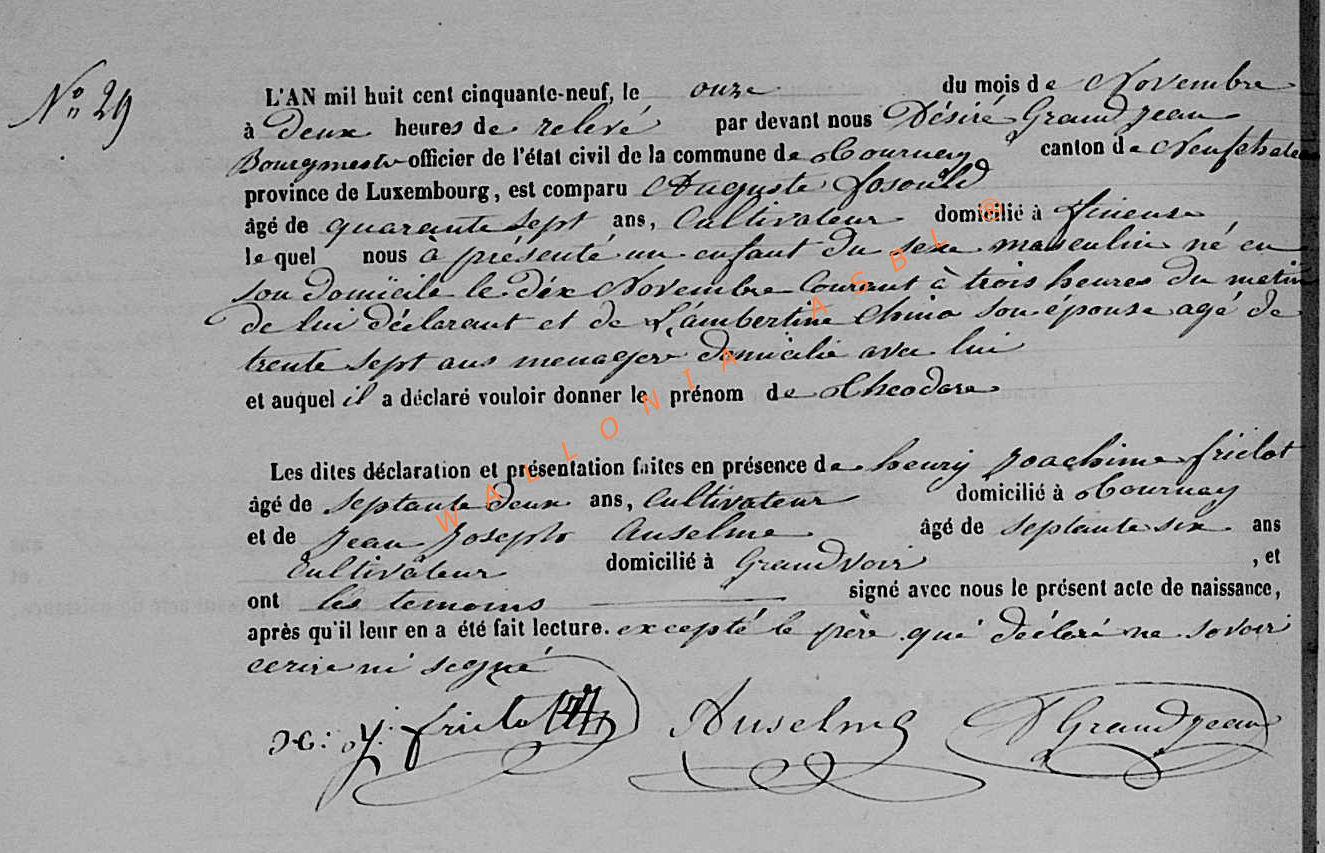 N° 29
L'AN mil huit cent cinquante-neuf, le onze du mois de Novembre
à deux heures de relevé par devant nous Désiré Grandjean
Bourgmestre officier de l'état civil de la commune de Tournay canton de Neufchateau
province de Luxembourg, est comparu Auguste
âgé de quarante sept ans, Cultivateur domicilié à
le quel nous à présenté un enfant du sexe masculin né en
son domïcile le dix Novembre Courant à trois heures du metin
de lui déclarant et de Lambertine son épouse agé de
trente sept ans menagere domicilié avec lui
et auquel il a déclaré vouloir donner le prénom de Theodore
Les dites déclaration et présentation faites en présence de henry Joachime frielot
âgé de septante deux ans, Cultivateur domicilié à Tournay
et de Jean Joseph Anselme âgé de septante six ans
Cultivateur domicilié à Grandvoir , et
ont les temoins signé avec nous le présent acte de naissance,
après qu'il leur en a été fait lecture. excepté le père qui déclaré ne savoir
ecrire ni segné
j: frielot Anselme D Grandjean
WALLONIA ASBL ®